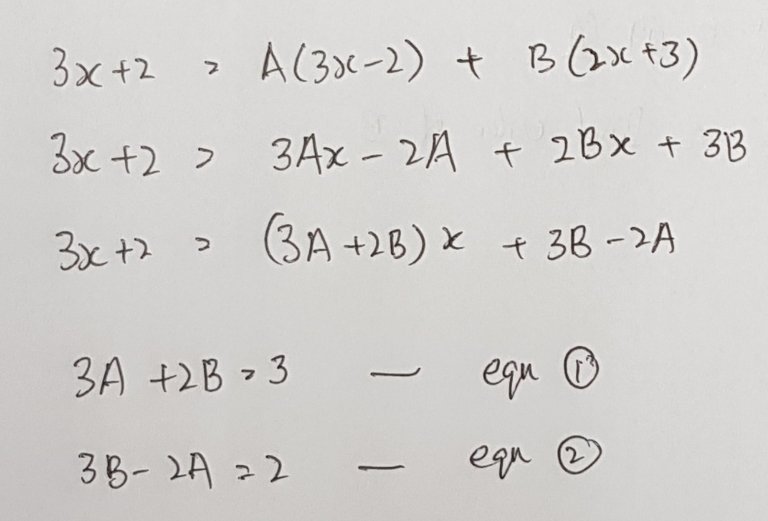 3x+2 = A(3x-2) + B(2x+3)
3x+2 = 3Ax - 2A + 2Bx + 3B
3x+2 = (3A+2B)x + 3B-2A
3A+2B=3 — equ ①
3B-2A=2 — equ ②